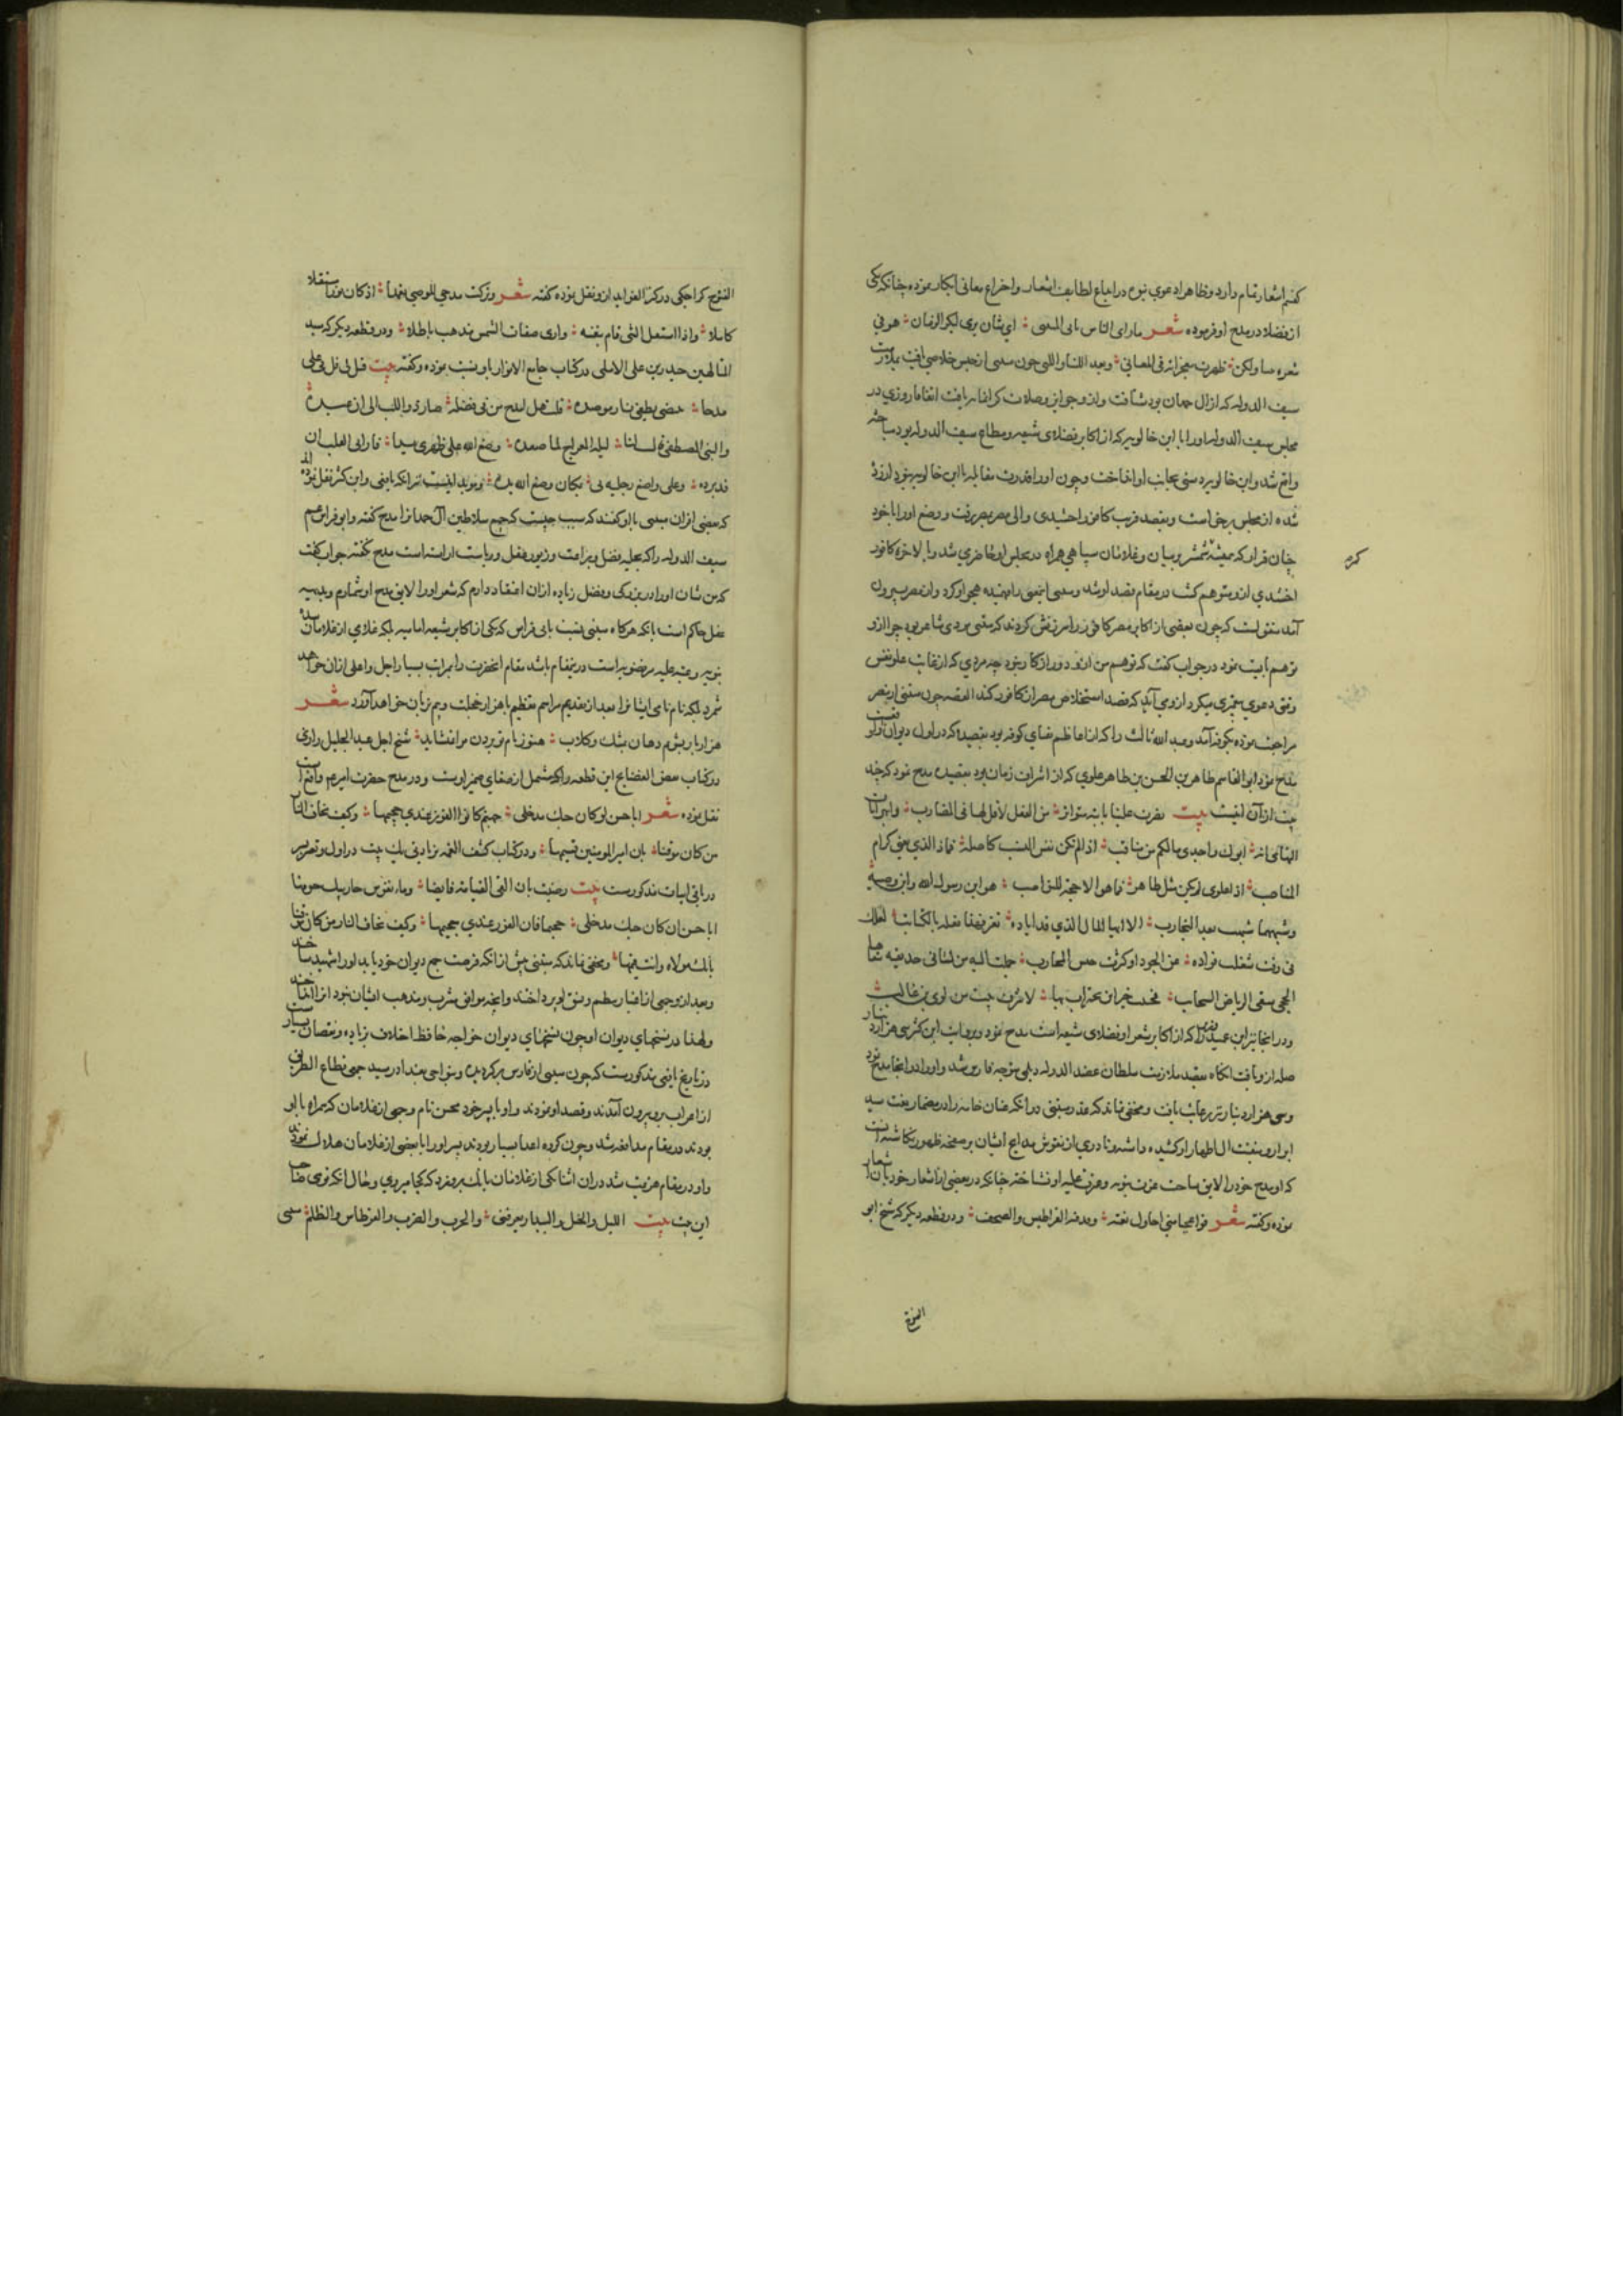 کفتم اشعار تمام دارد و ظاهرا دعوی نبوه در ابداع لطایف اشعار و اختراع معانی ابکار نموده چنانکه یکی
از فضلا در مدح او فرموده شعر ما رای الناس ثانی المتنبی ای ثان یری لبکر الزمان هو فی
شعره نبی ولکن ظهرت معجزاته فی المعانی و بعد اللتیا و اللتی چون متنبی از حبس خلاصی یافت بملازمت
سیف الدوله که از آل حمدان بود شتافت و ازو جوایز و صلات کرانمایه یافت اتفاقا روزی در
مجلس سیف الدوله او را با ابن خالویه که از اکابر فضلای شیعه و مطاع سیف الدوله بود مباحثه
واقع شد و ابن خالویه دستی بجانب او انداخت و چون او را قدرت مقابله با ابن خالویه نبود آزرده
شده از مجلس برخاست و بقصد قرب کافور اخشیدی والی مصر بمصر رفت و وضع او را با خود
چنان قرار که همیشه شمشیر بر میان و غلامان سپاهی همراه در مجلس او حاضر می شد و بالاخره کافور
کرد
اخشیدی ازو متوهم کشت در مقام قصد او شد و متنبی اینمعنی را فهمیده هجو او کرد و از مصر بیرون
آمد منقولست که چون بعضی از اکابر مصر کافور را سرزنش کردند که متنبی مردی شاعر بود چرا ازو
توهم بایست نمود در جواب کفت که توهم من ازو دور از کار نبود چه مردی که از غایت علو نفس
وقتی دعوی پیغمبری میکرد ازو می آید که قصد استخلاص مصر از کافور کند القصه چون متنبی از مصر
مراجعت نموده بکوفه آمد و عبد الله ثالث را که از اعاظم نقبای کوفه بود بقصیده که در اول دیوان او واقعست
مدح نمود ابو القاسم طاهر بن الحسن بن طاهر علوی که از اشراف زمان بود بقصیده مدح نمود که چند
بیت از آن اینست بیت
التهامی انه ابوک واحدی مالکم من مناقب اذا لم تکن نفس النسیب کاصله فماذا الذی یغنی کرام
المناصب اذا علوی لم یکن مثل طاهر فما هو الا حجة للنواصب هو ابن رسول الله و ابن وصیه
و شبههما شبهت بعد التجارب الا ایها المال الذی قد اباده تعز فهذا فعله بالکتائب لعلک
فی وقت شغلت فؤاده عن الجود او کثرت جیش المحارب حملت الیه من لسانی حدیقه سقاها
الحجی سقی الریاض السحاب فحییت خیر ابن لخیر اب بها لاشرف بیت من لوی بن غالب
و در انجا نیز ابن عمید را که از اکابر شعرا و فضلای شیعه است مدح نمود و بروایت ابن کثیر سی هزار دینار
صله ازو یافت انکاه بقصد ملازمت سلطان عضد الدوله دیلمی متوجه فارس شد و او را در انجا مدح نمود
و سی هزار دینار برعایت یافت و مخفی نماند که متنبی در انکه عنان خامه را در مضمار نعت سید
ابرار و منقبت آل اطهار او کشیده و اشعار نادری از نقوش مدایح ایشان بر صفحه ظهور نکاشته انست
که او مدح خود را لایق ساحت عزت نبویه و عزت علیه او نشناخته چنانکه در بعضی از اشعار خود بان اشعار
نموده و کفته شعر و در قطعه دیکر که شیخ ابو
الفتح
الفتح کراجکی در کنز الفواید ازو نقل نموده کفته شعر و ترکت مدحی للوصی تعمدا اذ کان نورا مستقلا
کاملا و اذا استقل الشی قام بنفسه و اری صفات الشمس تذهب باطلا و در قطعه دیکر که سید
المتالهین حیدر بن علی الاملی در کتاب جامع الانوار باو نسبت نموده و کفته بیت قیل لی قل فی علی
مدحا
و النبی المصطفی قال لنا لیلة المعراج لما صعده وضع الله علی ظهری یدا فارانی القلب ان
قد برده و علی واضع رجلیه لی بمکان وضع الله یده و موید اینست انکه یافعی و ابن کثیر نقل نموده اند
که بعضی از ان متنبی با او کفتند که سبب چیست که جمیع سلاطین آل حمدانرا مدح کفته و ابو فراس عم
سیف الدوله را که بحلیه فضل و براعت و زیور عقل و ریاست اراسته است مدح نکفته جواب کفت
که من شان او را در بزرکی و فضل زیاده از ان اعتقاد دارم که شعر او را لایق مدح او شمارم و بدیهیه
عقل حاکم است بانکه هرکاه متنبی نسبت بابی فراس که یکی از اکابر شیعه امامیه بلکه غلامی از غلامان سده
نبویه و عتبه علیه مرتضویه است درین مقام باشد مقام انحضرت را بمراتب بسیار اجل و اعلی از ان خواهد
شمرد بلکه نام نامی ایشانرا بعد از تقدیم مراسم تعظیم با هزار خجلت و بیم بزبان خواهد آورد شعر
هزار بار بشویم دهان بمشک و کلاب هنوز نام تو بردن مرا نشاید شیخ اجل عبد الجلیل رازی
در کتاب نقض الفضایح این قطعه را که مشتمل از صفای ضمیر اوست و در مدح حضرت امیر واقع است
نقل نموده شعر ابا حسن لو کان حبک مدخلی جهنم کان الفوز عندی جحیمها و کیف یخاف النار
من کان موقنا بان امیر المومنین قسیمها و در کتاب کشف الغمه زیادتی یک بیت در اول و تغییر
در باقی ابیات مذکورست بیت
ابا حسن ان کان حبک مدخلی جحیما فان الفوز عندی جحیمها و کیف یخاف النار من کان موقنا
بانک مولاه و انت قسیمها و مخفی نماند که متنبی پیش از انکه فرصت جمع دیوان خود یابد او را شهید ساختند
و بعد ازو جمعی از اغیار بنظم و نسق او پرداختند و انچه موافق مشرب و مذهب ایشان نبود انرا انداختند
و لهذا در نسخهای دیوان او چون نسخهای دیوان خواجه حافظ اختلاف زیاده و نقصان بسیارست
در تاریخ یافعی مذکورست که چون متنبی از فارس برکردید و بنواحی بغداد رسید جمعی قطاع الطریق
از اعراب برو بیرون آمدند و قصد او نمودند و او با پسر خود محسن نام و جمعی از غلامان که همراه با او
بودند در مقام مدافعه شد و چون کروه اعدا بسیار بودند پسر او را با بعضی از غلامان هلاک نمودند
و او در مقام هزیمت شد در ان اثنا یکی از غلامان بانک برو زد که کجا میروی و حال انکه توی صاحب
این بیت بیت اللیل و الخیل و البیداء یعرفنی و الحرب و الضرب و القرطاس و القلم متنبی